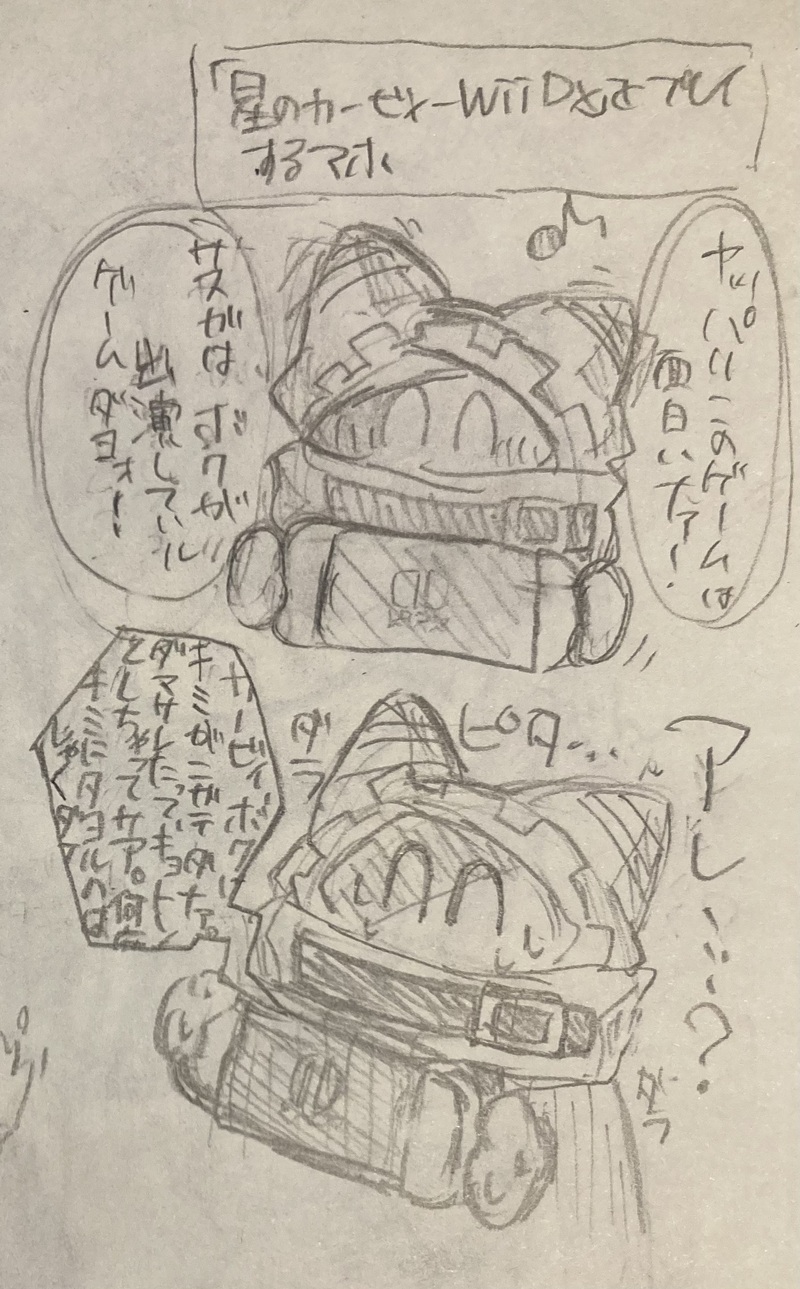 「星のカービィーWii DX」をプレイ
するマホ
ヤッパリこのゲームは
面白いナァ!
サスがは ボクが
出演している
ゲームダヨォ!
ピタ…
アレ……?
ダラ
カービィ、ボクに
キミがニガテダナァ。
ダマサレたってギョット
としちゃってサァ。何
キミにタヨルのは
しゃくダ
ダラ